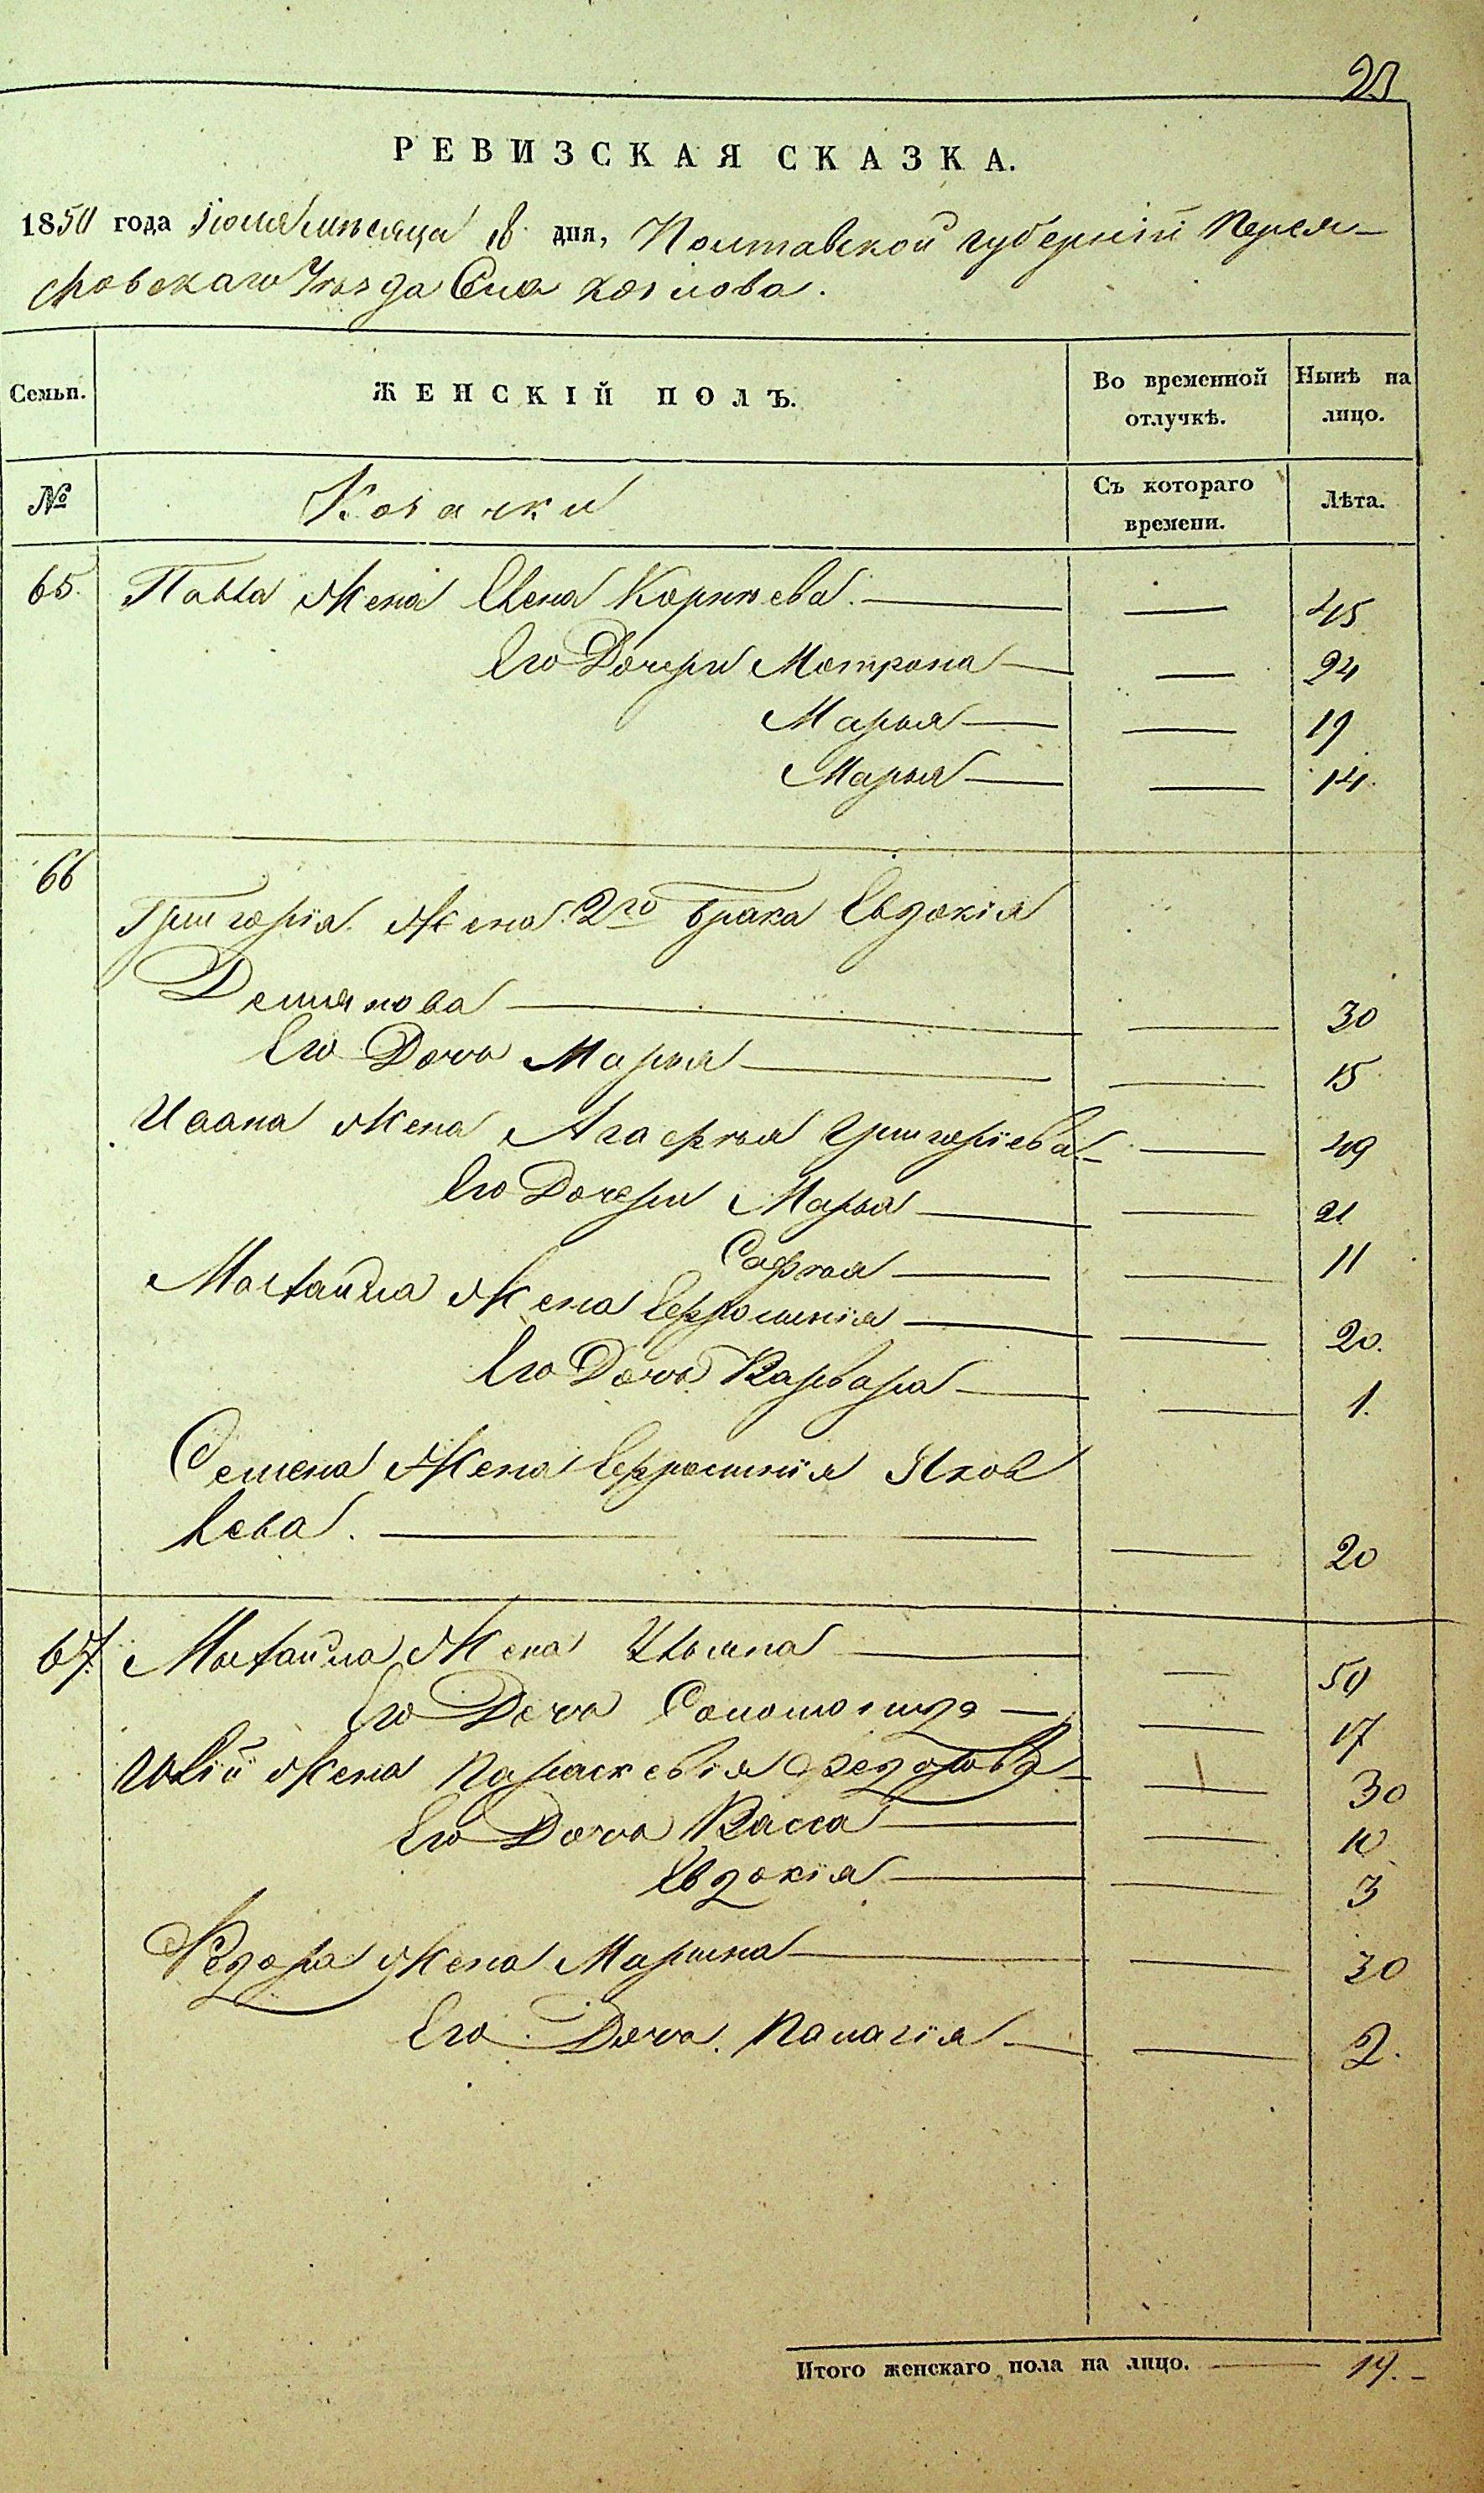 23
РЕВИЗСКАЯ СКАЗКА.
1850 года Іюля мѣсяца 18 дня, Полтавской губерніи Перея-
словскаго Уѣзда Села Козлова.
Семьи. ЖЕНСКІЙ ПОЛЪ. Во временной отлучкѣ. Нынѣ на лицо.
№ Козачки Съ котораго времени. Лѣта.
65. Павла Жена Елена Корнѣева. — — 45
Его Дочери Мотрона — — 24
Марья — — 19
Марья — — 14.
66
Григорія Жена 2го брака Евдокія
Демянова — — 30
Его Дочь Марья — — 15
Ивана Жена Агафья Григоріева — — 49
Его Дочери Марья — — 21
Софья — — 11
Михайла Жена Ефросинія — — 20.
Его Дочь Варвара — — 1.
Семена Жена Ефросинія Яков
лева. — — 20
67. Михайла Жена Ульяна — — 50
Его Дочь Соломонида — — 17
Жена Параскевія Федорова — — 30
Его Дочь Васса — — 10
Евдокія — — 3
Федора Жена Марина — — 30
Его Дочь Палагія — — 2.
Итого женскаго пола на лицо. — 19. -